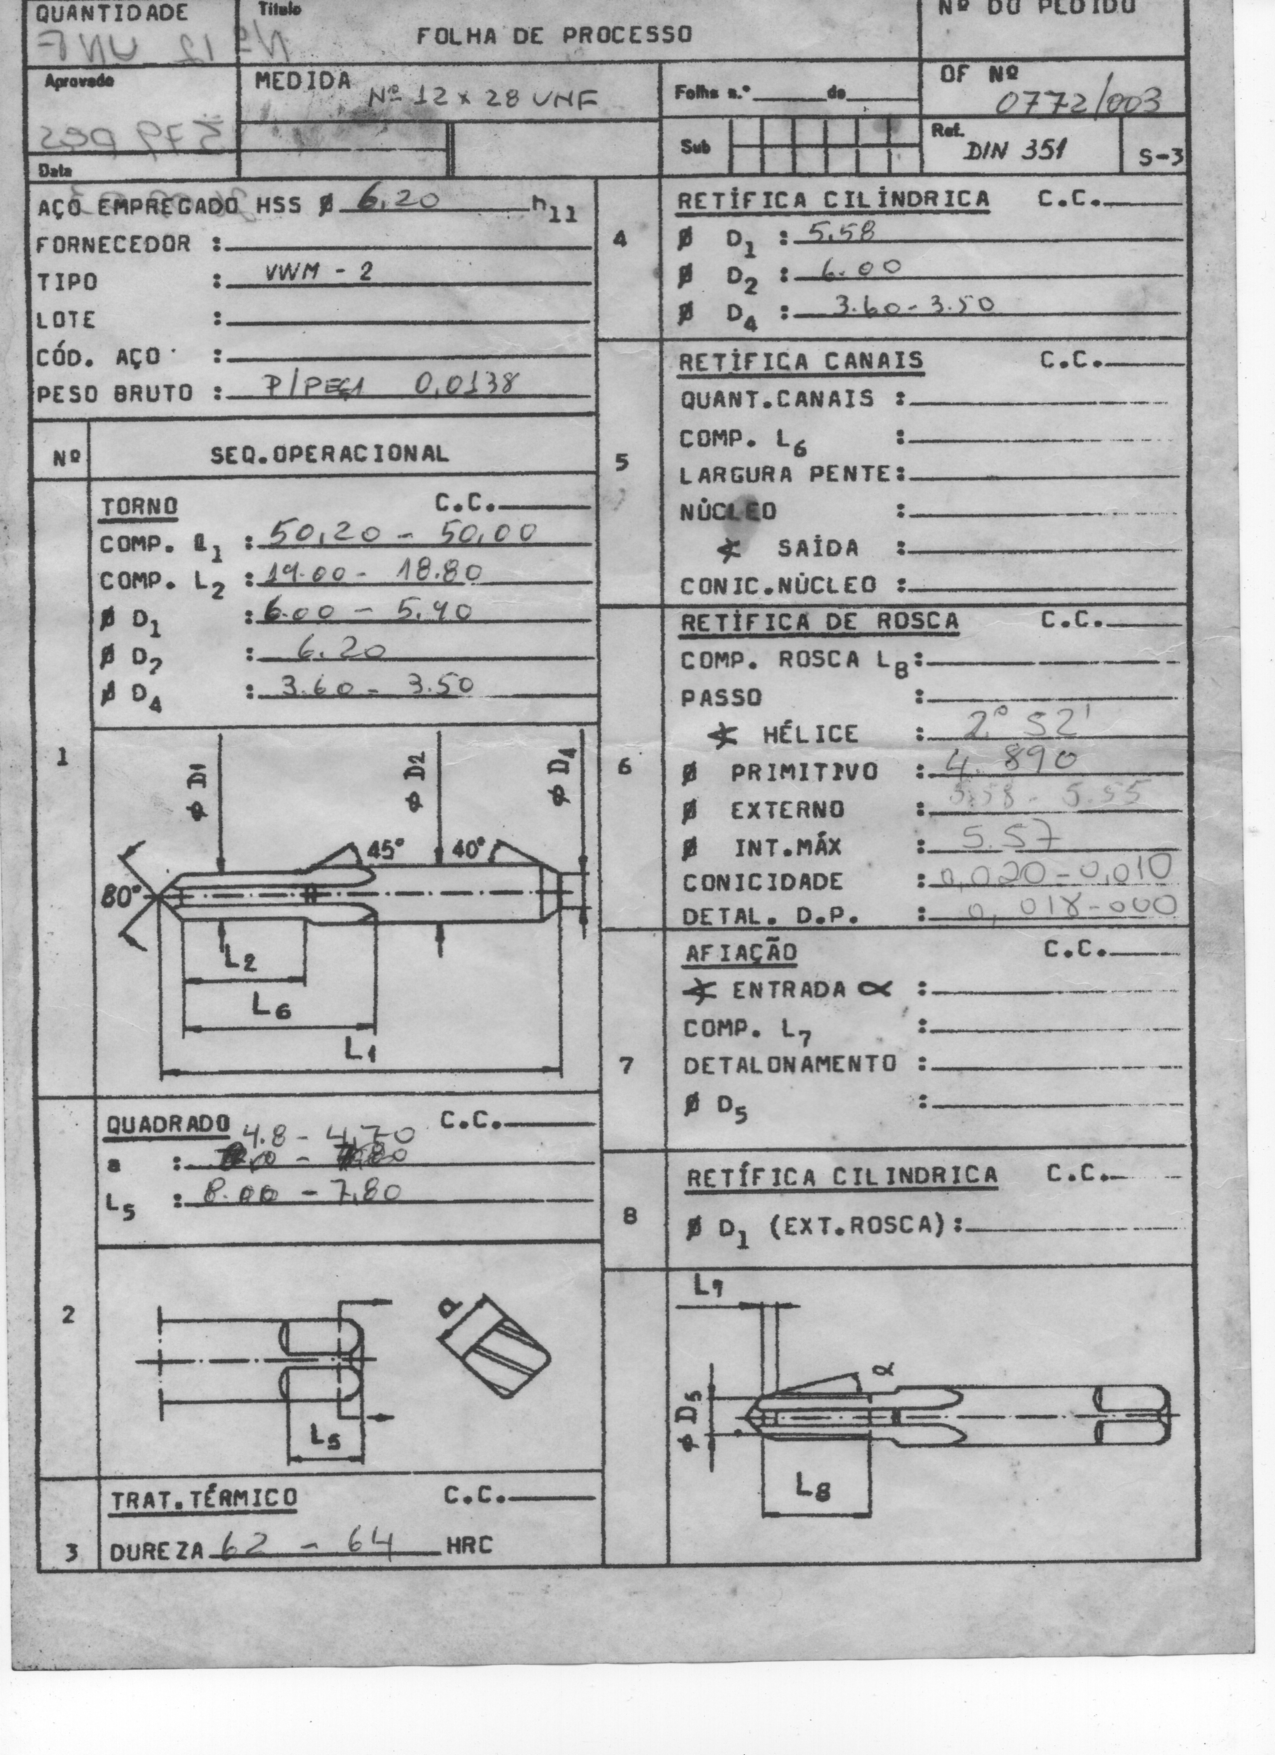 QUANTIDADE
Título
FOLHA DE PROCESSO
Nº DO PEDIDO
Nº 12 UNF
Aprovado
MEDIDA
Nº 12 x 28 UNF
Folha n.º ______ de ______
OF Nº
0772/003
Sub
Ref.
DIN 351
S-3
Data
AÇO EMPREGADO HSS Ø 6,20 h11
FORNECEDOR :
TIPO : VWM - 2
LOTE :
CÓD. AÇO :
PESO BRUTO : P/PEÇA 0,0138
Nº
SEQ.OPERACIONAL
1
TORNO C.C.
COMP. L1 : 50,20 - 50,00
COMP. L2 : 19.00 - 18.80
Ø D1 : 6.00 - 5.90
Ø D2 : 6.20
Ø D4 : 3.60 - 3.50
Ø D1
Ø D2
Ø D4
45° 40°
80°
L2
L6
L1
2
QUADRADO C.C.
4.8 - 4,70
a :
L5 : 8.00 - 7,80
a
L5
3
TRAT.TÉRMICO C.C.
DUREZA 62 - 64 HRC
4
RETÍFICA CILÍNDRICA C.C.
Ø D1 : 5.58
Ø D2 : 6.00
Ø D4 : 3.60 - 3.50
5
RETÍFICA CANAIS C.C.
QUANT.CANAIS :
COMP. L6 :
LARGURA PENTE:
NÚCLEO :
∢ SAÍDA :
CONIC.NÚCLEO :
6
RETÍFICA DE ROSCA C.C.
COMP. ROSCA L8:
PASSO :
∢ HÉLICE : 2° 52'
Ø PRIMITIVO : 4.890
Ø EXTERNO : 5.58 - 5.55
Ø INT.MÁX : 5.57
CONICIDADE : 0,020 - 0,010
DETAL. D.P. : 0,018-000
7
AFIAÇÃO C.C.
∢ ENTRADA α :
COMP. L7 :
DETALONAMENTO :
Ø D5 :
8
RETÍFICA CILINDRICA C.C.
Ø D1 (EXT.ROSCA):
L7
α
Ø D5
L8